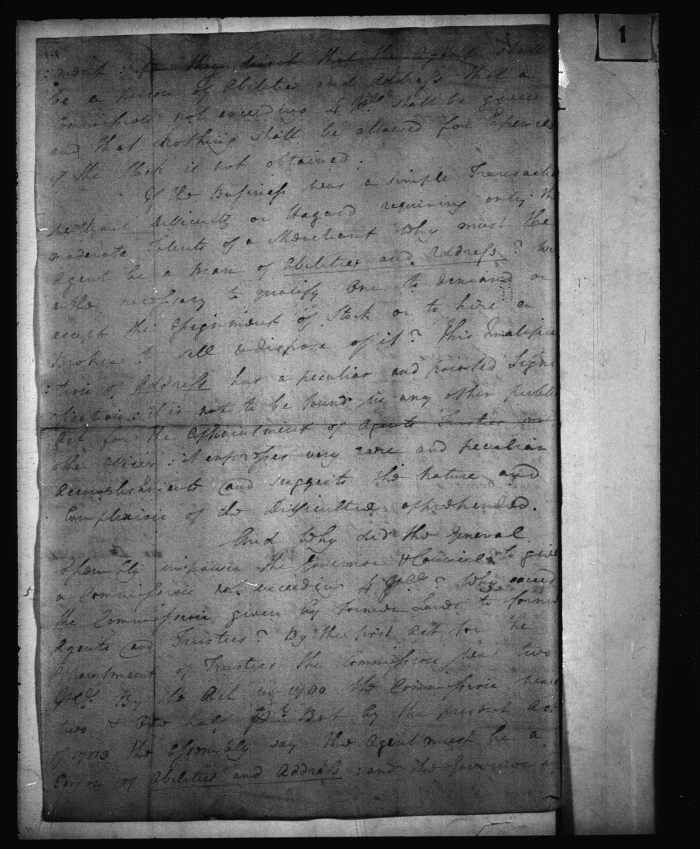 1
they direct that the Agent shall
be a Person of Abilities and Address that a
Commission not exceeding 4 shall be given
and that nothing shall be allowed for Expences
if the Stock is not obtained.
If the Business was a simple Transacti
without difficulty or Hazard requiring only th
moderate Talents of a Merchant Why must the
Agent be a man of Abilities and Address?
necessary to qualify one to demand or
accept the Assignment of Stock or to hire a
Broker to sell & dispose of it? This Qualifica
:tion of Address has a peculiar and pointed Signi
:fication: it is not to be found in any other publi
Act for the Appointment of Agents Trustees or
other Officers: It expresses very rare and peculiar
Accomplishments and suggests the nature and
Complexion of the Difficulties apprehended.
And Why did the General
Assembly impower the Governor & Council to give
a Commission not exceeding 4 ? Why exceed
the Commission given by former Laws to former
Agents and Trustees? By the first Act for the
Appointment of Trustees the Commission was two
By the Act of the Commission was
two & one half But by the present Act
of the Assembly say the Agent must be a
Person of Abilities and Address: and the Governor